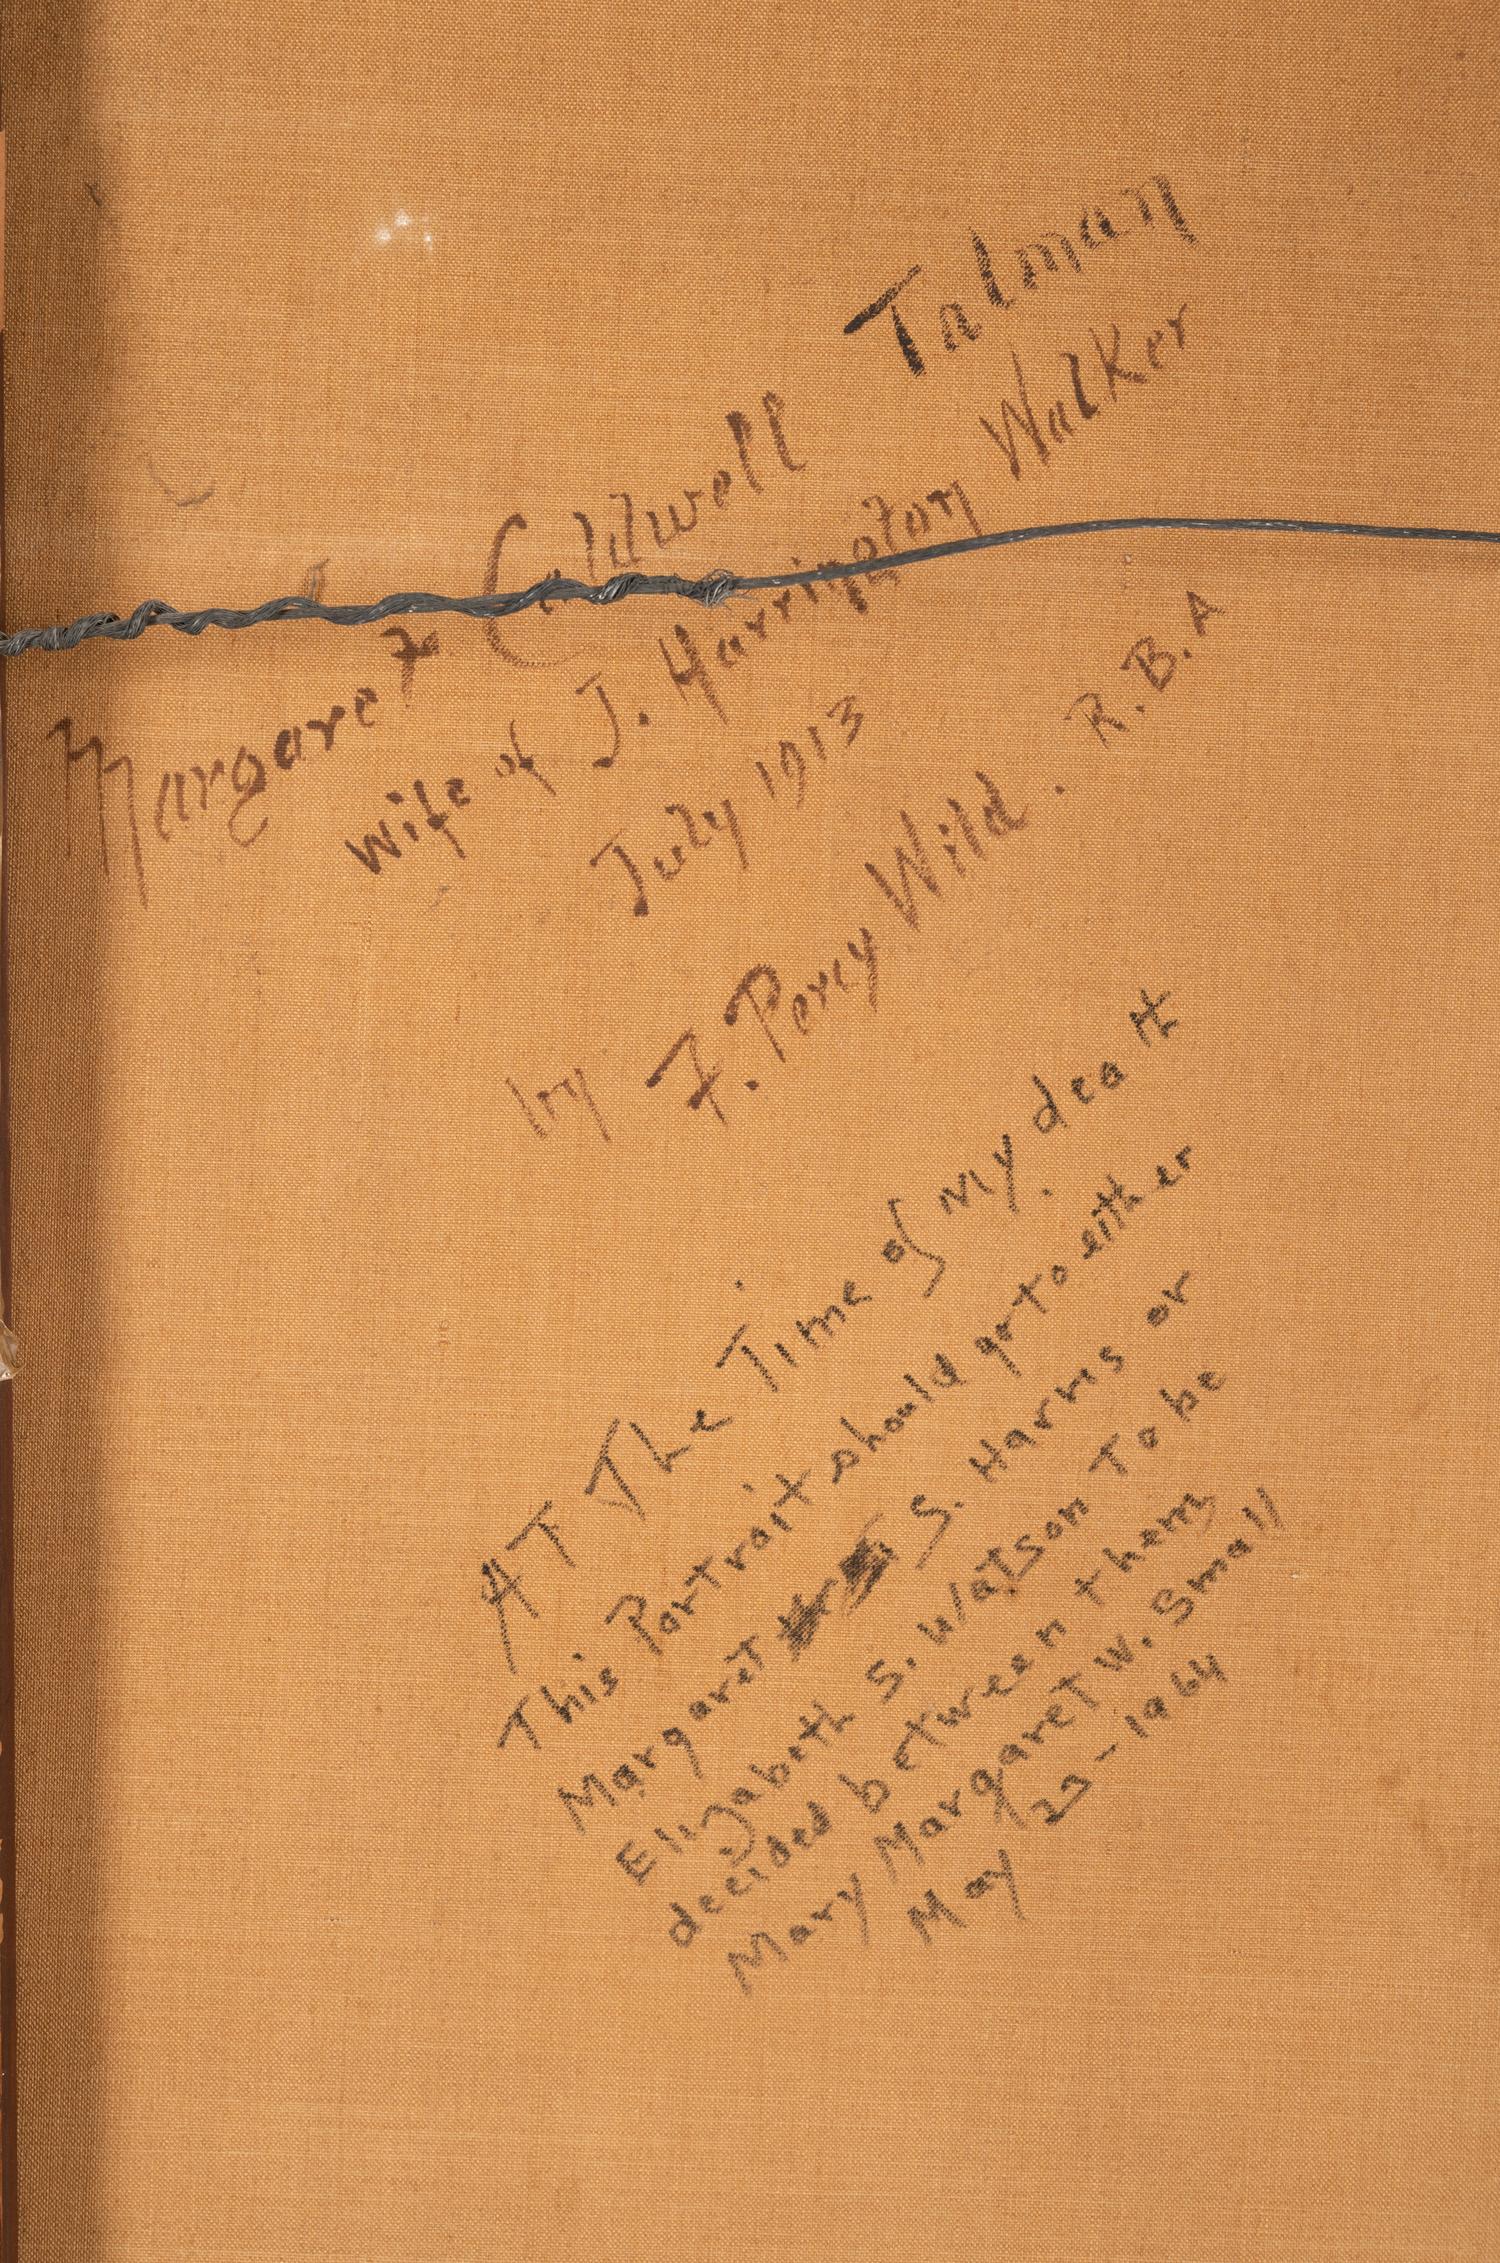 Margaret Caldwell Talman
Wife of J. Harrington Walker
July 1913
by F. Percy Wild. R.B.A
AT The Time of My. death
This Portrait should go to either
Margaret S. Harris or
Elizabeth S. Watson To be
decided between them
Mary Margaret W. Small
May 23-1964